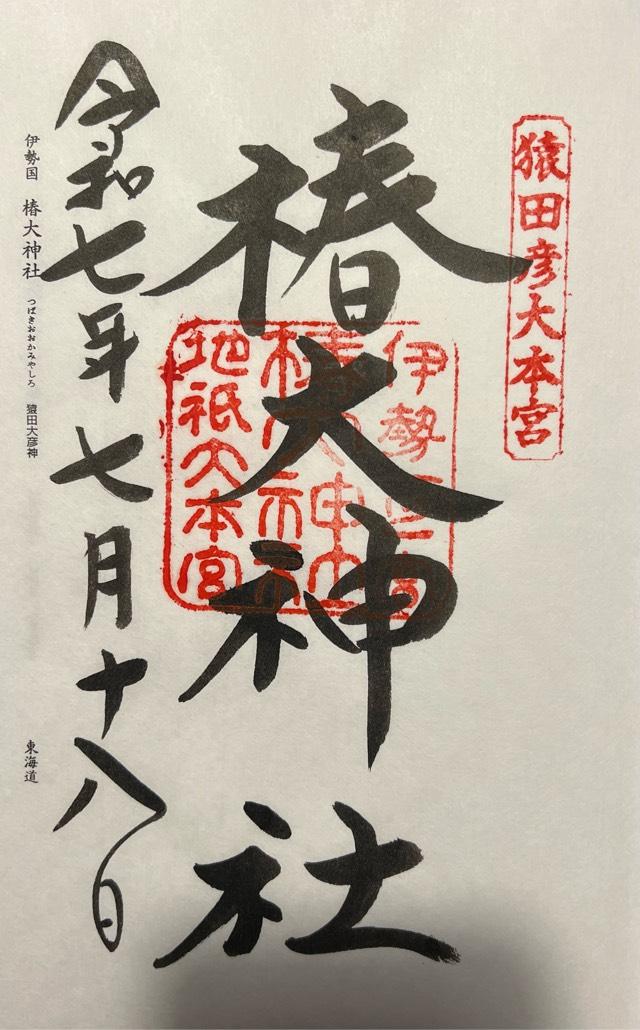 猿田彦大本宮
椿大神社
伊勢一之宮
椿大神社
地祇大本宮
令和七年七月十八日
伊勢国 椿大神社 つばきおおかみやしろ 猿田大彦神
東海道